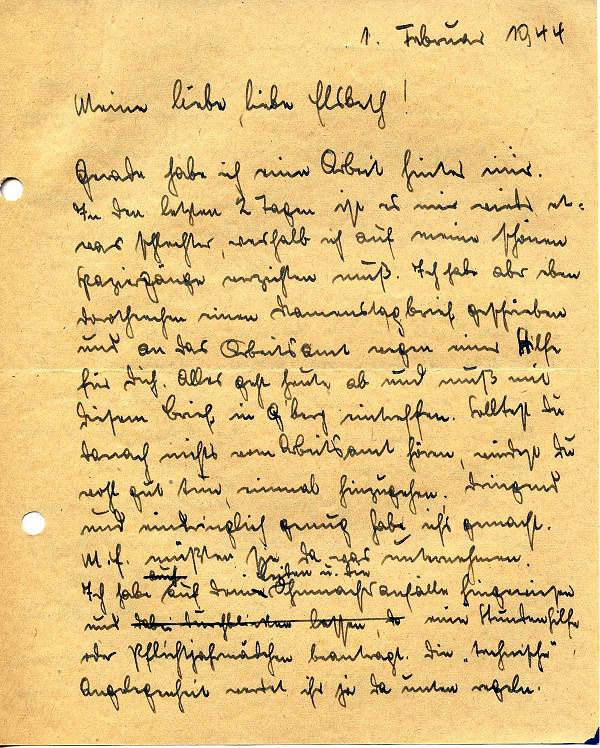 1. Februar 1944
Meine liebe, liebe Elsbeth!
Gerade habe ich eine Arbeit hinter mir.
In den letzten 2 Tagen ist es mir wieder et=
was schlechter, weshalb ich auf meine schönen
Spaziergänge verzichten muß. Ich habe aber eben
Dorothechen einen Namenstagbrief geschrieben
und an das Arbeitsamt wegen einer Hilfe
für Dich. Alles geht heute ab und muß mit
diesem Brief in G'berg eintreffen. Solltest Du
danach nichts vom Arbeitsamt hören, würdest Du
wohl gut tun, einmal hinzugehen. Dringend
und eindringlich genug habe ich's gemacht.
M.E. müßten sie da was unternehmen.
auf Leiden u. die
Ich habe auf Deine Ohnmachtsanfälle hingewiesen
und dabei durchblicken lassen, da eine Stundenhilfe
oder Pflichtjahrmädchen beantragt. Die "technische"
Angelegenheit werdet ihr ja da unten regeln.